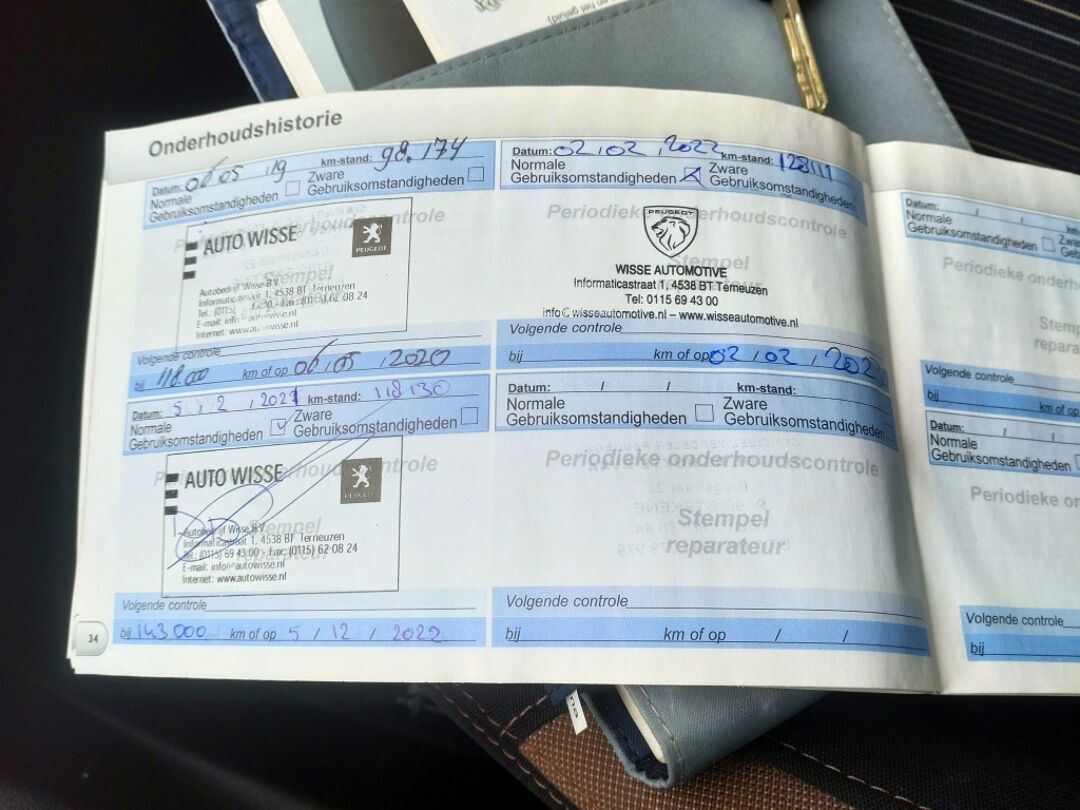 en het geluid).
Onderhoudshistorie
Datum: 06 05 19 km-stand: 98.174
Normale Gebruiksomstandigheden Zware Gebruiksomstandigheden
AUTO WISSE
PEUGEOT
Autobedrijf Wisse B.V.
Informaticastraat 1, 4538 BT Terneuzen
Tel.: (0115) Fax: (0115) 62 08 24
E-mail: info@autowisse.nl
Internet: www.autowisse.nl
Volgende controle
bij 118.00 km of op 06 / 05 / 2020
Datum: 5 / 2 / 2021 km-stand: 118130
Normale Gebruiksomstandigheden Zware Gebruiksomstandigheden
Periodieke onderhoudscontrole
AUTO WISSE
PEUGEOT
Stempel
Autobedrijf Wisse B.V.
Informaticastraat 1, 4538 BT Terneuzen
Tel.: (0115) 69 43 00 - Fax: (0115) 62 08 24
E-mail: info@autowisse.nl
Internet: www.autowisse.nl
Volgende controle
bij 143.000 km of op 5 / 12 / 2022
34
Datum: 02 / 02 / 2022 km-stand: 128111
Normale Gebruiksomstandigheden Zware Gebruiksomstandigheden
Periodieke onderhoudscontrole
PEUGEOT
Stempel
WISSE AUTOMOTIVE
Informaticastraat 1, 4538 BT Terneuzen
Tel: 0115 69 43 00
info@wisseautomotive.nl – www.wisseautomotive.nl
Volgende controle
bij km of op 02 / 02 / 2023
Datum: / / km-stand:
Normale Gebruiksomstandigheden Zware Gebruiksomstandigheden
Periodieke onderhoudscontrole
Stempel
reparateur
Volgende controle
bij km of op / /
Datum: / / km-
Normale Gebruiksomstandigheden
Periodieke onderh
Stemp
repara
Volgende controle
bij km of op
Datum: / /
Normale Gebruiksomstandigheden
Periodieke on
Volgende controle
bij